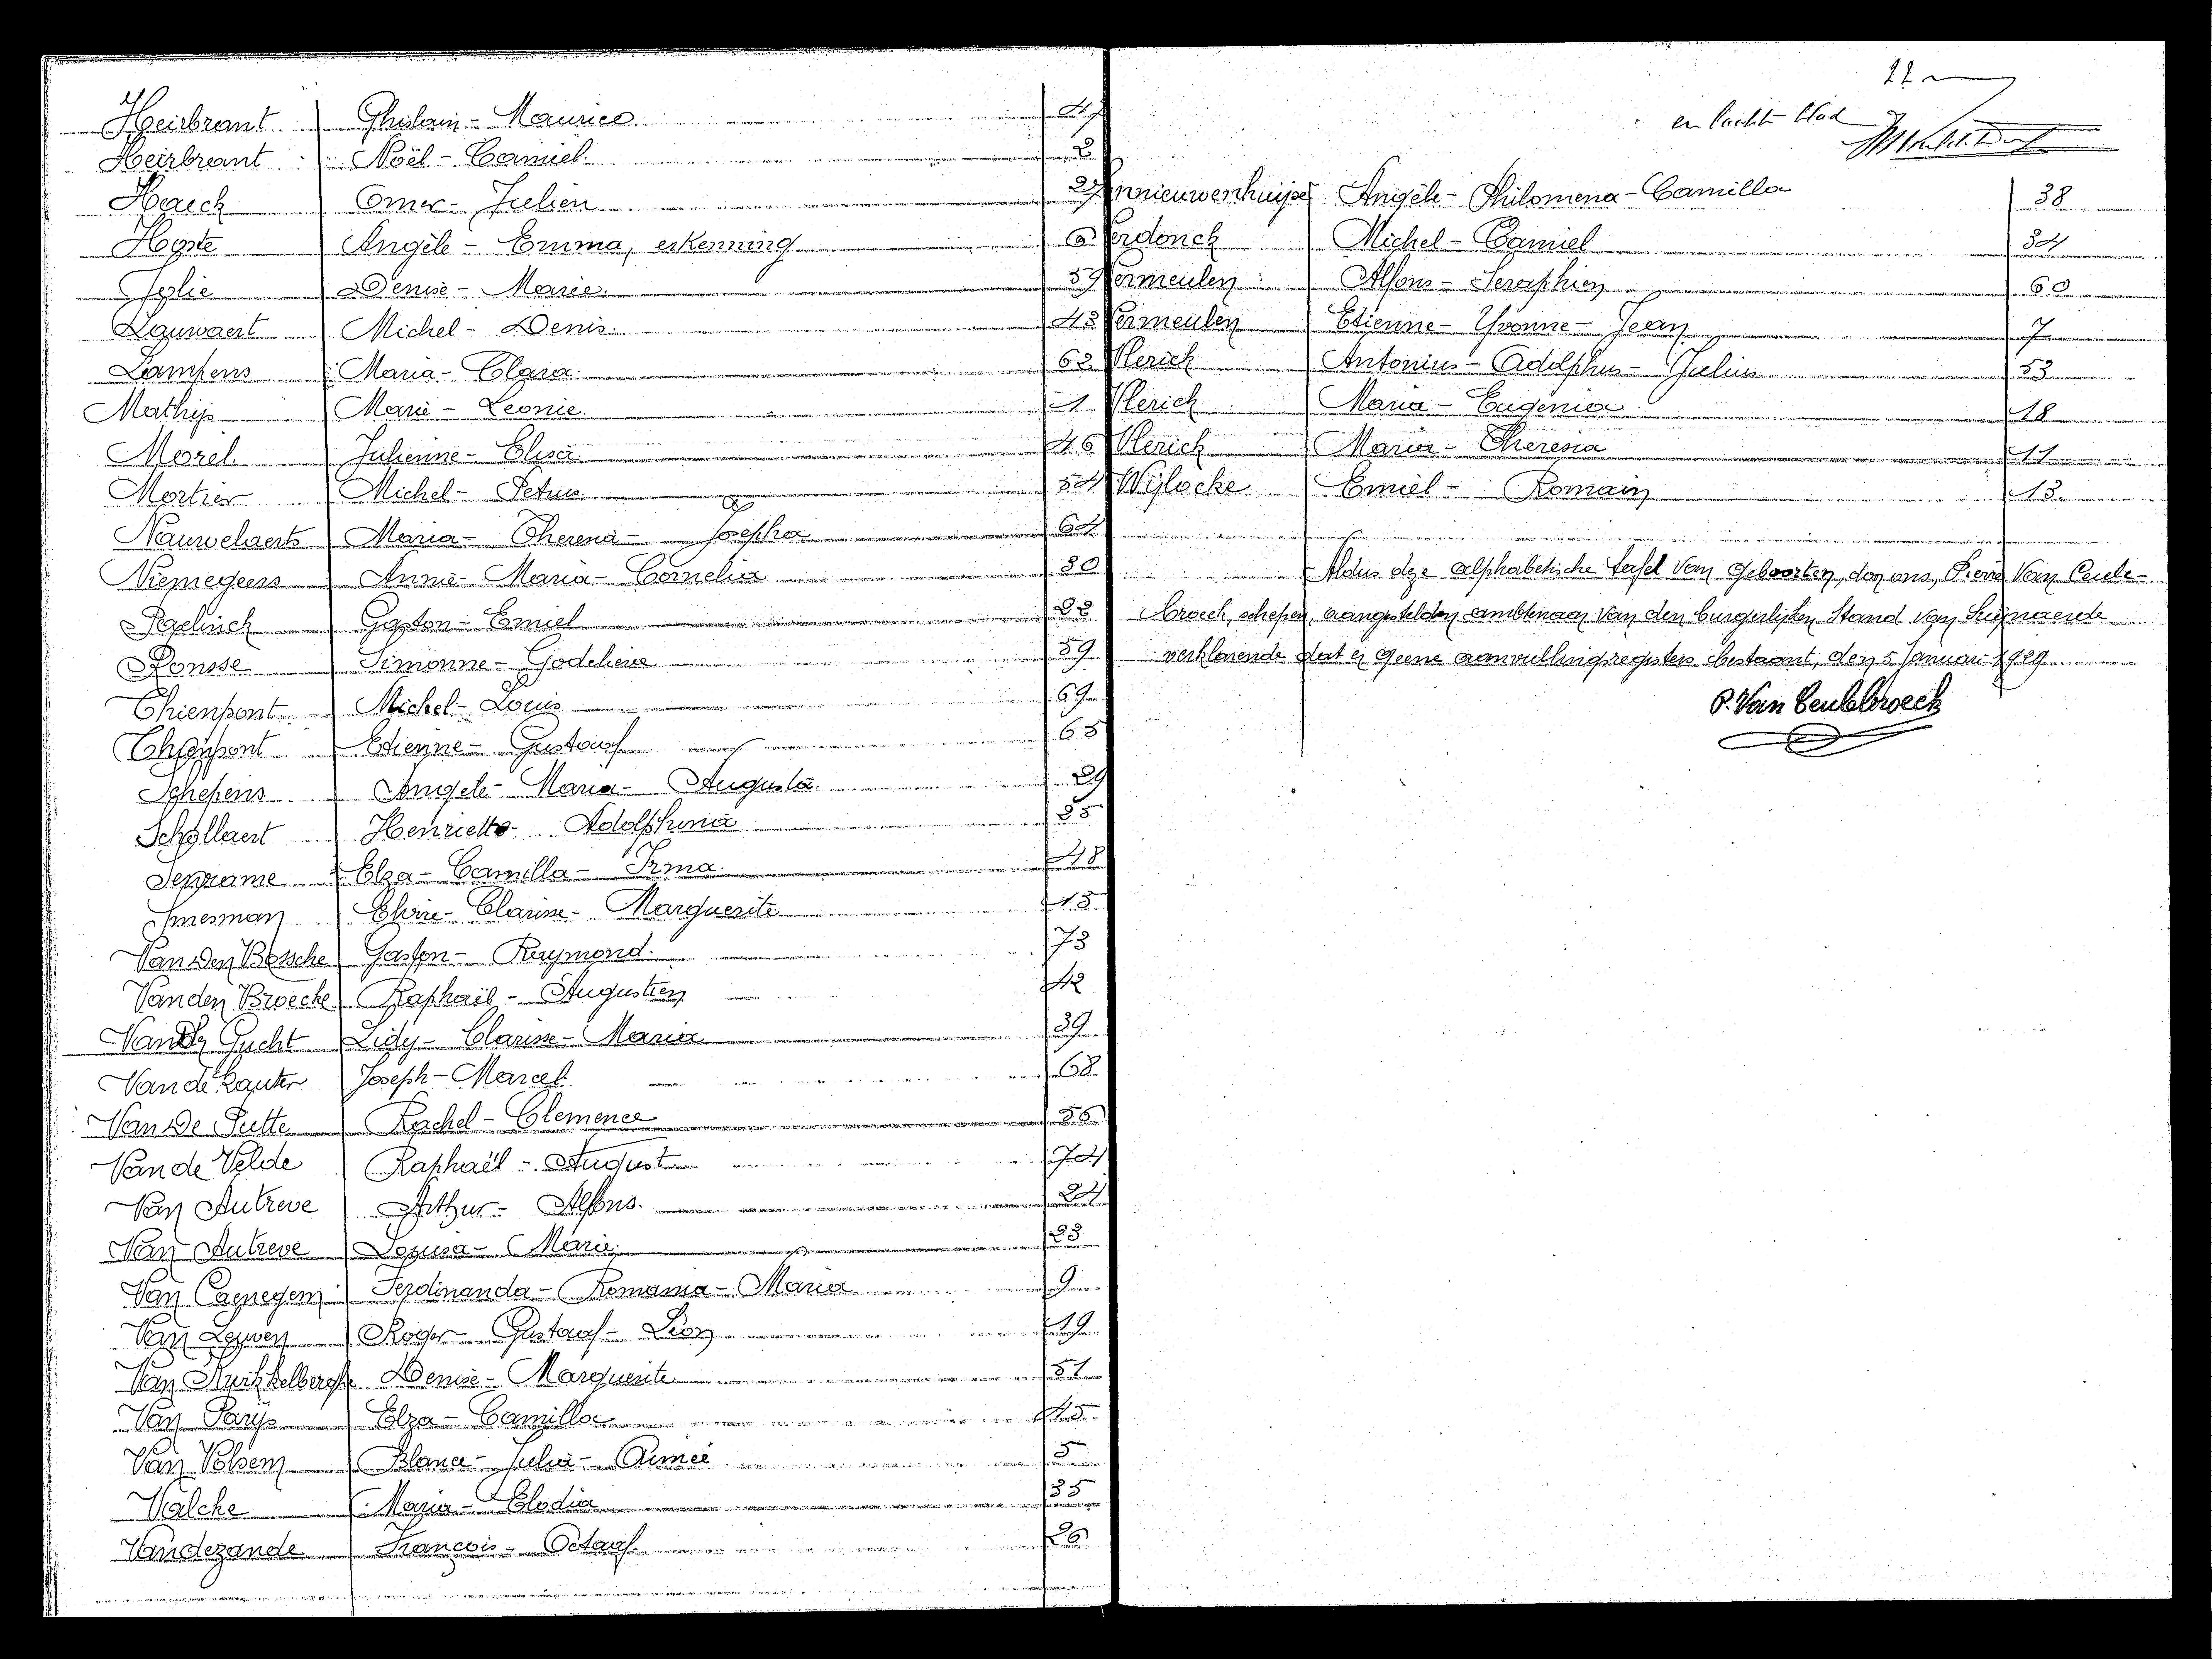 Heirbrant Ghislain - Maurice 47
Heirbrant Noël - Camiel 2
Haeck Omer - Julien 27
Hoste Angèle - Emma, erkenning 6
Jolie Denise - Marie 37
Lauwaert Michel - Denis 43
Lampens Maria - Clara 62
Mathijs Marie - Leonie 1
Morel Julienne - Elisa 46
Mortier Michel - Petrus 54
Nauwelaerts Maria - Theresia - Josepha 64
Niemegeers Annie - Maria - Cornelia 30
Paelinck Gaston - Emiel 22
Ronsse Simonne - Godelieve 59
Thienpont Michel - Louis 69
Thienpont Etienne - Gustaaf 65
Schepens Angele - Maria - Augusta 29
Schollaert Henriette - Adolphina 25
Elza - Camilla - Irma 48
Smesman Elvire - Clarisse - Marguerite 15
Van Den Bossche Gaston - Raymond 73
Vanden Broecke Raphaël - Augustien 42
Van Der Gucht Lidy - Clarisse - Maria 39
Van de Kauter Joseph - Marcel 68
Van De Putte Rachel - Clemence 56
Van de Velde Raphaël - August 74
Van Autreve Arthur - Alfons 24
Van Autreve Lozusa - Marie 23
Van Caenegem Ferdinanda - Romania - Maria 9
Van Leuven Roger - Gustaaf - Léon 19
Van Denise - Marguerite 51
Van Parijs Elza - Camilla 45
Van Volsem Blanca - Julia - Aimeé 5
Valcke Maria - Elodia 35
Vandezande François - Octaaf 26
22
en lachtste blad
nnieuwenhuijse Angèle - Philomena - Camilla 38
Verdonck Michel - Camiel 34
Vermeulen Alfons - Seraphien 60
Vermeulen Etienne - Yvonne - Jean 7
Vlerick Antonius - Adolphus - Julius 53
Vlerick Maria - Eugenia 18
Vlerick Maria - Theresia 11
Wijlocke Emiel - Romain 13
Aldus deze alphabetische tafel van geboorten, door ons, Pierre Van Ceule-
broeck, schepen, aangestelden ambtenaar van den burgerlijken Stand van Suijnaerde
verklarende dat er geene aanvullingsregisters bestaant, den 5 Januari 1929
P. Van Ceulebroeck